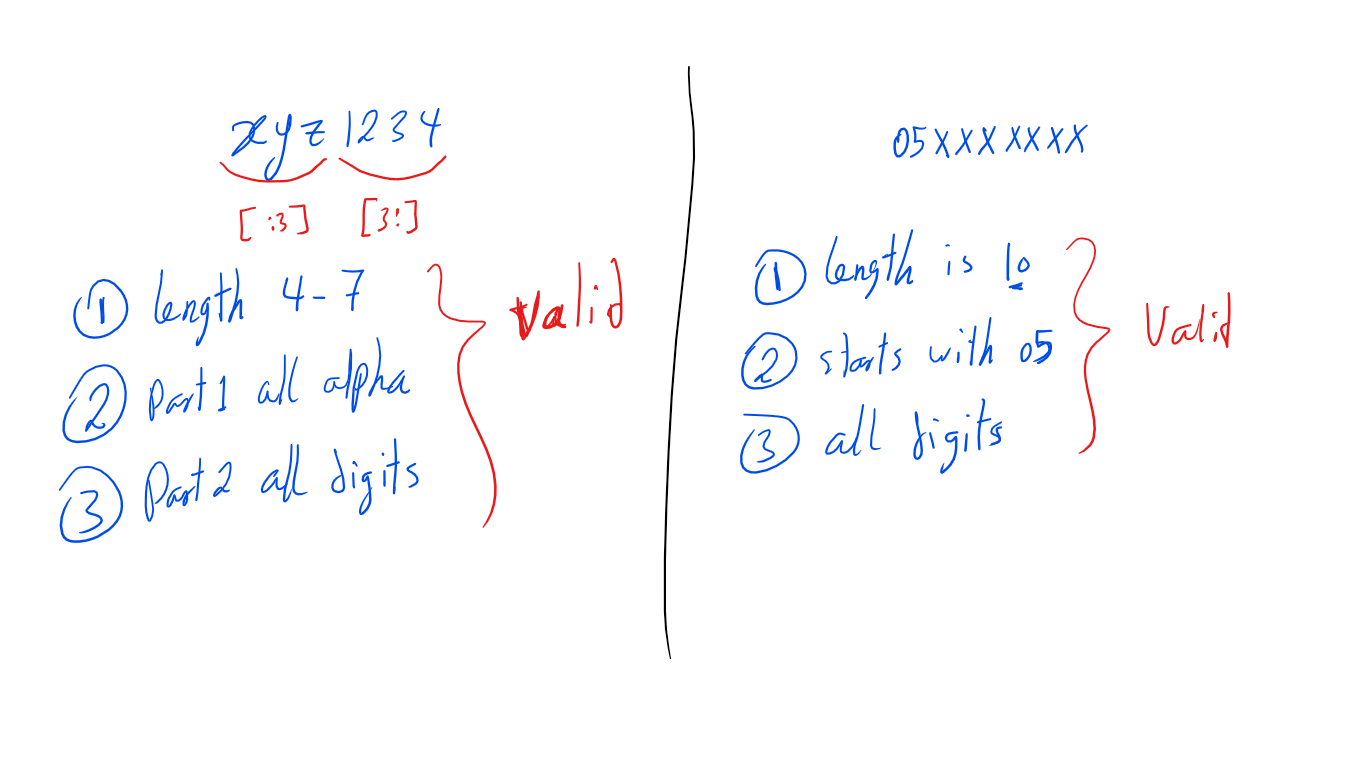 xyz 1234
[:3] [3:]
① length 4-7
② Part1 all alpha
③ Part2 all digits
Valid
05XXXXXXXX
① length is 10
② starts with 05
③ all digits
Valid